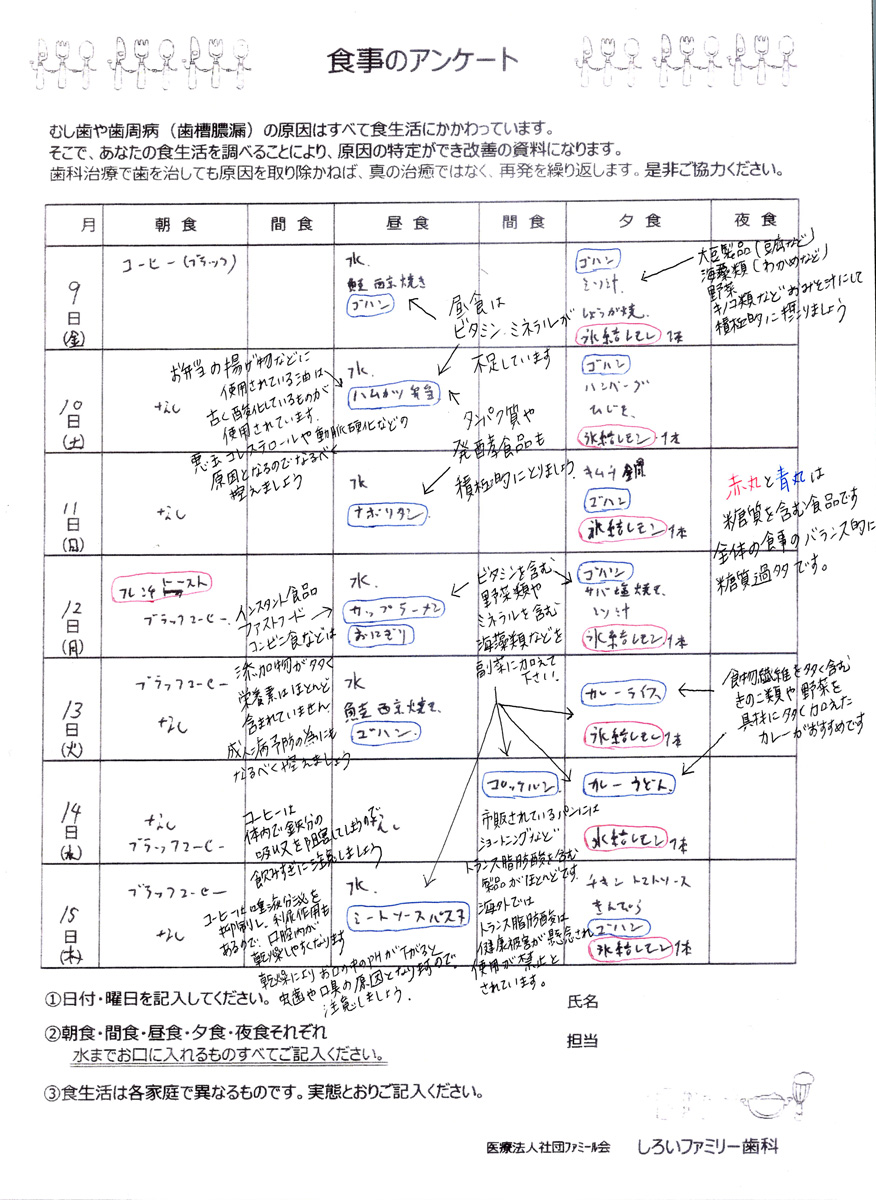 食事のアンケート
むし歯や歯周病（歯槽膿漏）の原因はすべて食生活にかかわっています。
そこで、あなたの食生活を調べることにより、原因の特定ができ改善の資料になります。
歯科治療で歯を治しても原因を取り除かねば、真の治癒ではなく、再発を繰り返します。是非ご協力ください。
月 朝食 間食 昼食 間食 夕食 夜食
9日(金)
コーヒー(ブラック)
水
鮭西京焼き
ゴハン
昼食は
ビタミン、ミネラルが
不足しています
ゴハン
ミソ汁
しょうが焼
氷結レモン 1本
大豆製品(豆腐など)
海藻類(わかめなど)
野菜
キノコ類などおみそ汁にして
積極的に摂りましょう
10日(土)
なし
お弁当の揚げ物などに
使用されている油は
古く酸化しているものが
使用されています。
悪玉コレステロールや動脈硬化などの
原因となるのでなるべく
控えましょう
水
ハムカツ弁当
タンパク質や
発酵食品も
積極的にとりましょう
ゴハン
ハンバーグ
ひじき
氷結レモン 1本
11日(日)
なし
水
ナポリタン
キムチ鍋
ゴハン
氷結レモン 1本
赤丸と青丸は
糖質を含む食品です
全体の食事のバランス的に
糖質過多です。
12日(月)
フレンチトースト
ブラックコーヒー
インスタント食品
ファストフード
コンビニ食などは
添加物が多く
栄養素はほとんど
含まれていません
成人病予防の為にも
なるべく控えましょう
水
カップラーメン
おにぎり
ビタミンを含む
野菜類や
ミネラルを含む
海藻類などを
副菜に加えて
下さい。
ゴハン
サバ塩焼き
ミソ汁
氷結レモン 1本
13日(火)
ブラックコーヒー
なし
水
鮭西京焼き
ゴハン
カレーライス
氷結レモン 1本
食物繊維を多く含む
きのこ類や野菜を
具材に多く加えた
カレーがおすすめです
14日(水)
なし
ブラックコーヒー
コーヒーは
体内で鉄分の
吸収を阻害してしまうので
飲みすぎに注意しましょう
なし
コロッケパン
市販されているパンには
ショートニングなど
トランス脂肪酸を含む
製品がほとんどです。
海外では
トランス脂肪酸は
健康被害が懸念され
使用が禁止と
されています。
カレーうどん
氷結レモン 1本
15日(木)
ブラックコーヒー
なし
コーヒーは唾液分泌を
抑制し、利尿作用も
あるので、口腔内が
乾燥しやすくなります
乾燥によりお口の中のpHが下がると
虫歯や口臭の原因となりますので
注意しましょう。
水
ミートソースパスタ
チキントマトソース
きんぴら
ゴハン
氷結レモン 1本
①日付・曜日を記入してください。
②朝食・間食・昼食・夕食・夜食それぞれ
水までお口に入れるものすべてご記入ください。
③食生活は各家庭で異なるものです。実態とおりご記入ください。
氏名
担当
医療法人社団ファミール会 しろいファミリー歯科